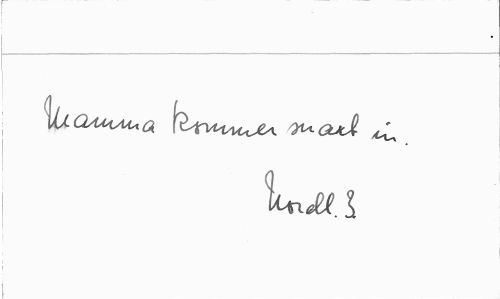 Mamma kommer snart in.
Nordl. 3.